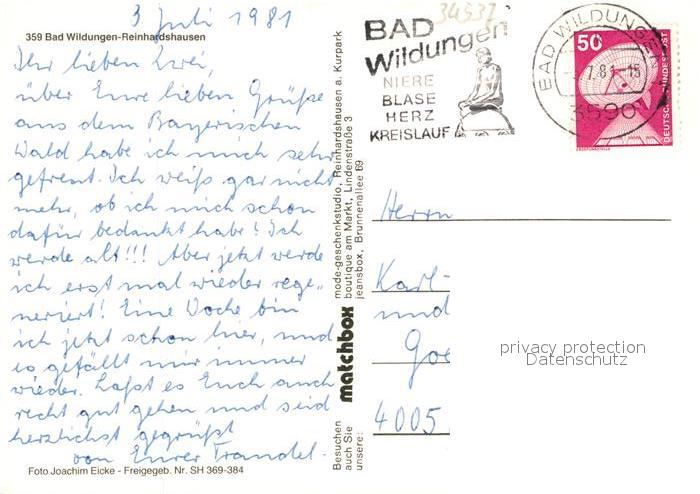 3 Juli 1981
359 Bad Wildungen-Reinhardshausen
Ihr lieben Zwei,
über Eure lieben Grüße
aus dem Bayerischen
Wald habe ich mich sehr
gefreut. Ich weiß gar nicht
mehr, ob ich mich schon
dafür bedankt habe! Ich
werde alt!!! Aber jetzt werde
ich erst mal wieder rege-
neriert! Eine Woche bin
ich jetzt schon hier, und
es gefällt mir immer
wieder. Laßt es Euch auch
recht gut gehen und seid
herzlichst gegrüßt
von Eurer Trandel.
Foto Joachim Eicke - Freigegeb. Nr. SH 369-384
Besuchen
auch Sie
unsere:
matchbox
mode-geschenkstudio, Reinhardshausen a. Kurpark
boutique am Markt, Lindenstraße 3
jeansbox, Brunnenallee 69
34537
BAD
Wildungen
NIERE
BLASE
HERZ
KREISLAUF
BAD WILDUNGEN
7.81-15
3590
50
DEUTSCHE BUNDESPOST
ERDFUNKSTELLE
Herrn
Karl-
und
Goe
4005
privacy protection
Datenschutz